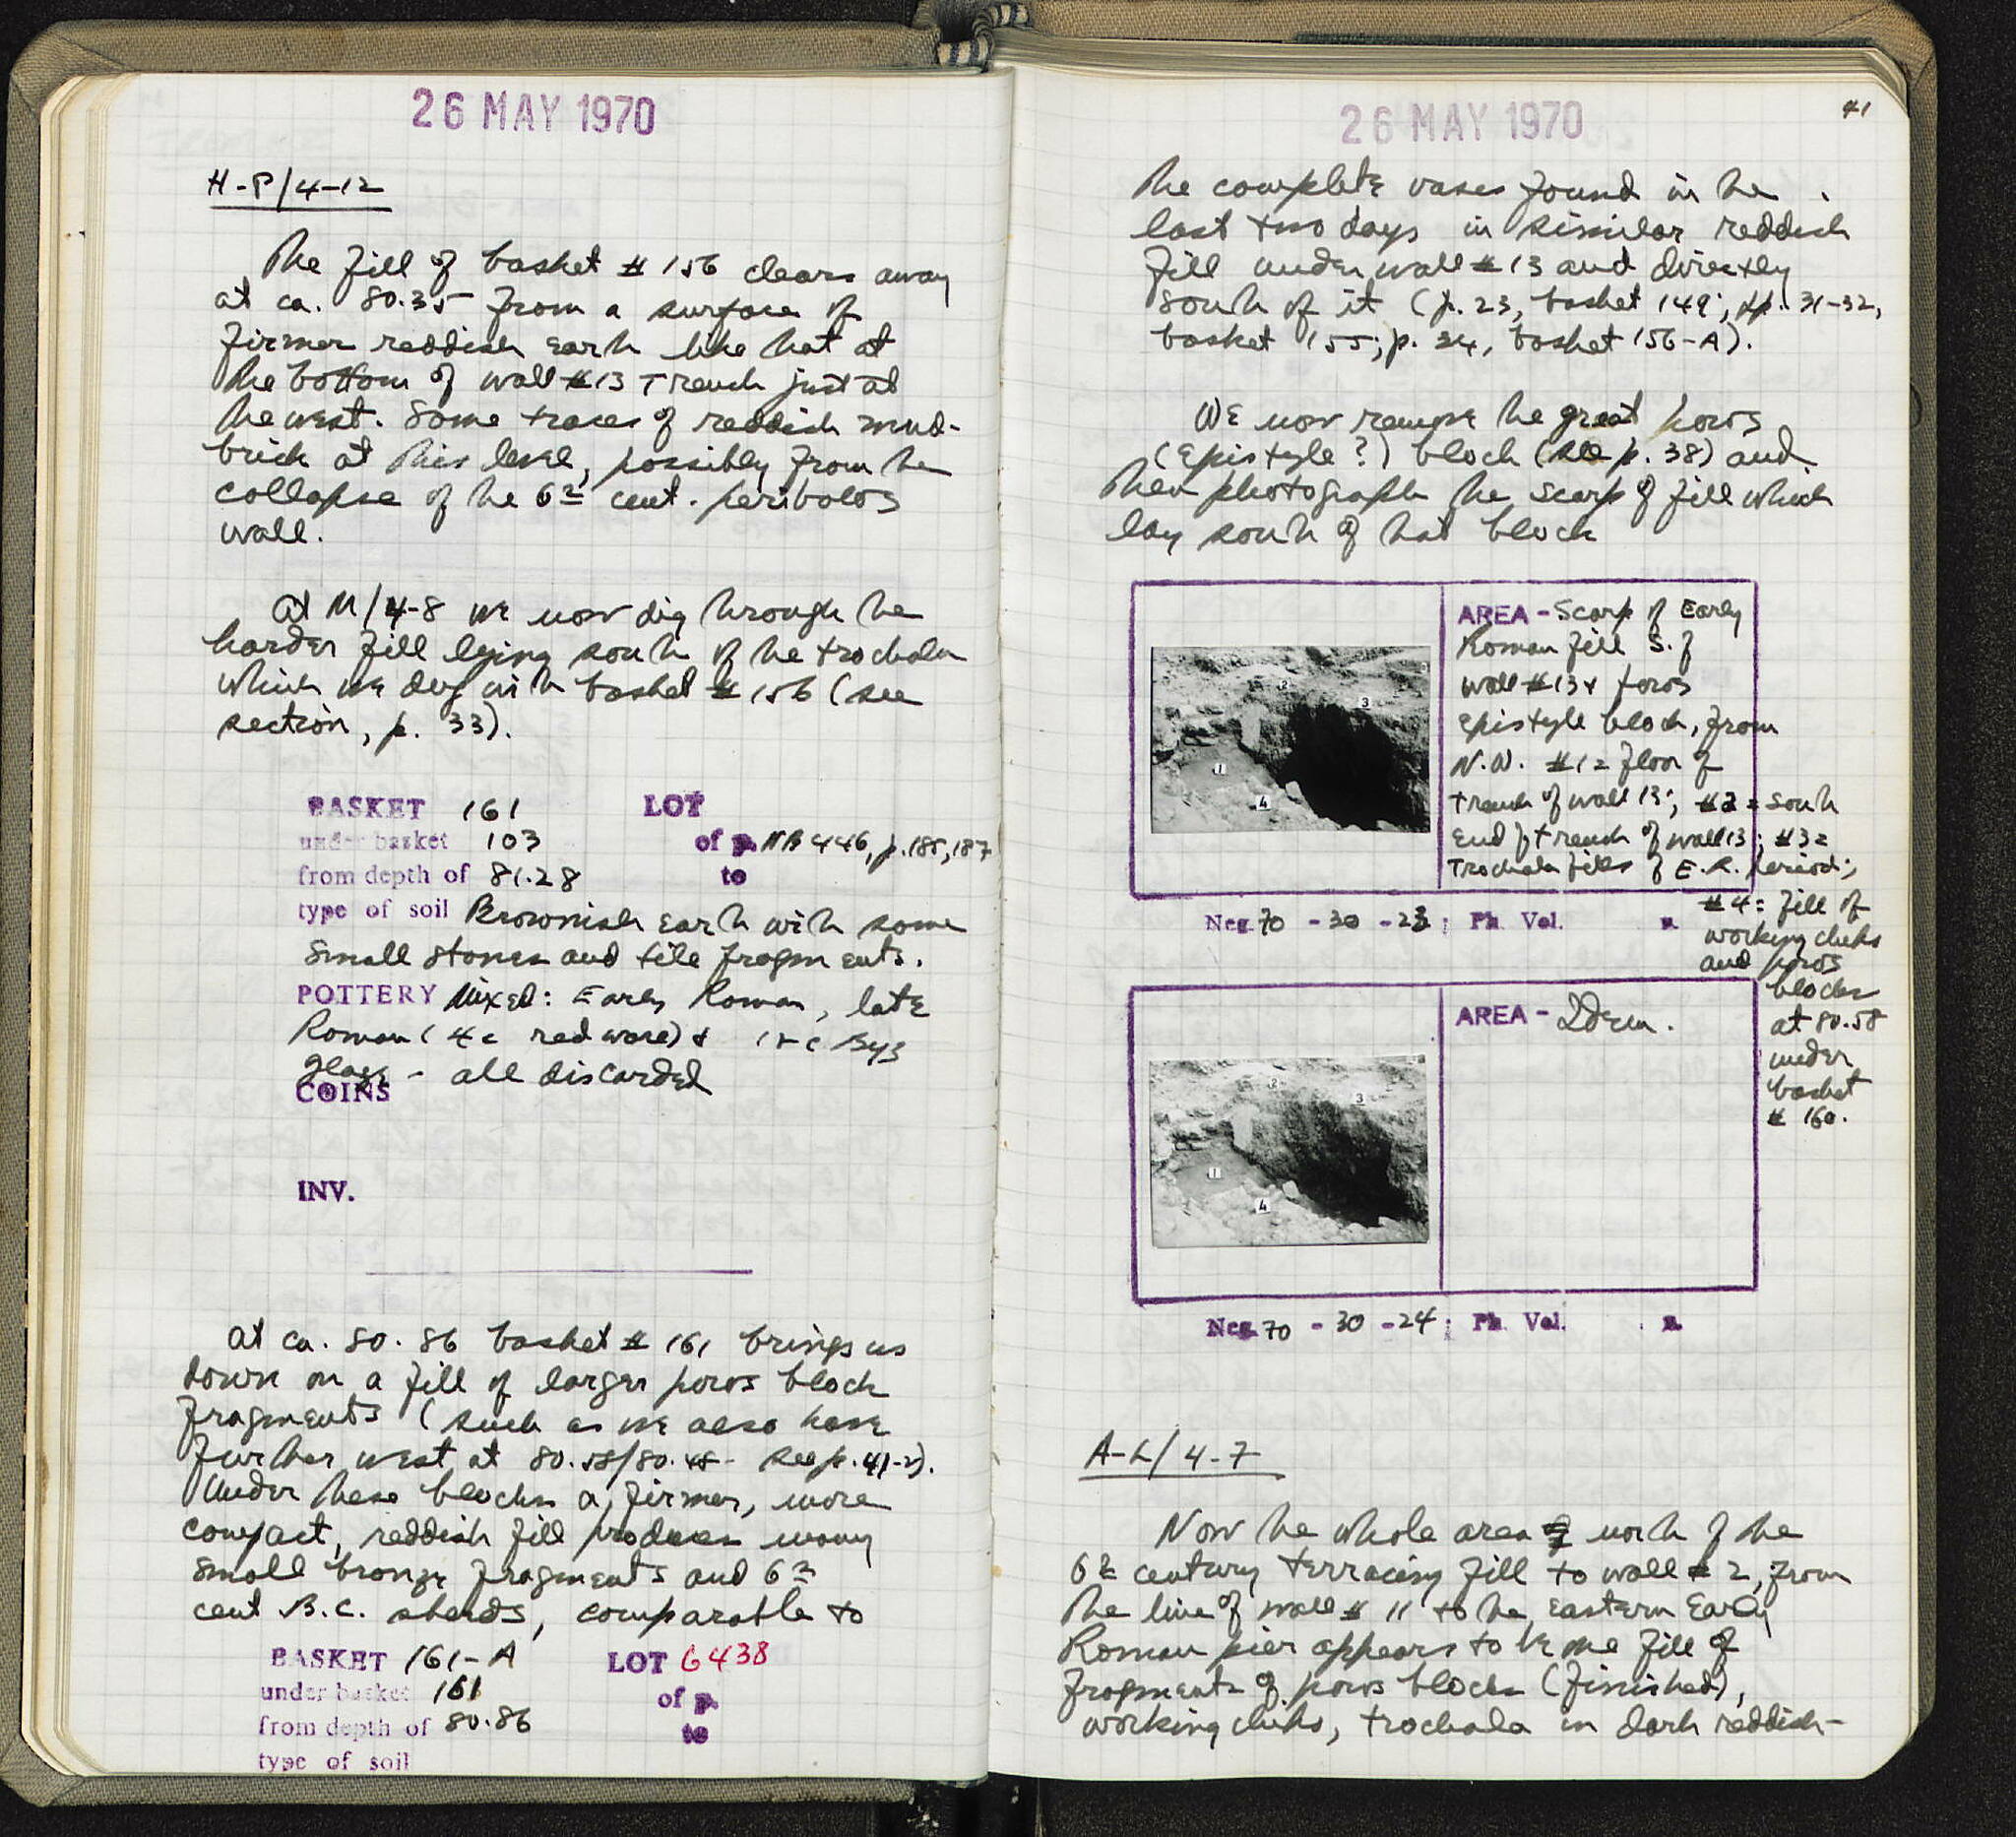 26 MAY 1970
H-P/4-12
The fill of basket # 156 clears away
at ca. 80.35 from a surface of
firmer reddish earth like that at
the bottom of wall #13 Trench just at
the west. Some traces of reddish mud-
brick at this level, possibly from the
collapse of the 6th cent. peribolos
wall.
At M/4-8 we now dig through the
harder fill lying south of the trochala
which we dug with basket # 156 (see
section, p. 33).
BASKET 161 LOT
under basket 103 of p. NB 446, p. 185, 187
from depth of 81.28 to
type of soil Brownish earth with some
small stones and tile fragments.
POTTERY Mixed: Early Roman, late
Roman (4c red ware) & 12c Byz
glaze - all discarded
COINS
INV.
at ca. 80.86 basket # 161 brings us
down on a fill of larger poros block
fragments (such as we also have
further west at 80.58/80.48 - see p. 41-2).
Under these blocks a firmer, more
compact, reddish fill produces many
small bronze fragments and 6th
cent B.C. sherds, comparable to
BASKET 161-A LOT 6438
under basket 161 of p.
from depth of 80.86 to
type of soil
26 MAY 1970
41
the complete vases found in the
last two days in similar reddish
fill under wall #13 and directly
south of it (p. 23, basket 149; pp. 31-32,
basket 155; p. 34, basket 156-A).
We now remove the great poros
(Epistyle?) block (see p. 38) and
then photograph the scarp of fill which
lay south of that block
AREA - Scarp of Early
Roman fill S. of
wall #13 & poros
epistyle block, from
N.W. #1 = floor of
trench of wall 13; #2 = south
end of trench of wall 13; #3 =
Trochala fills of E.R. period;
#4 = fill of
working chips
and poros
blocks
at 80.58
under
basket
# 160.
1
2
3
4
Neg. 70 - 30 - 23; Ph. Vol. p.
AREA - Idem.
1
2
3
4
Neg. 70 - 30 - 24; Ph. Vol. p.
A-L/4-7
Now the whole area north of the
6th century terracing fill to wall # 2, from
the line of wall # 11 to the eastern Early
Roman pier appears to be one fill of
fragments of poros blocks (finished),
working chips, trochala in dark reddish-